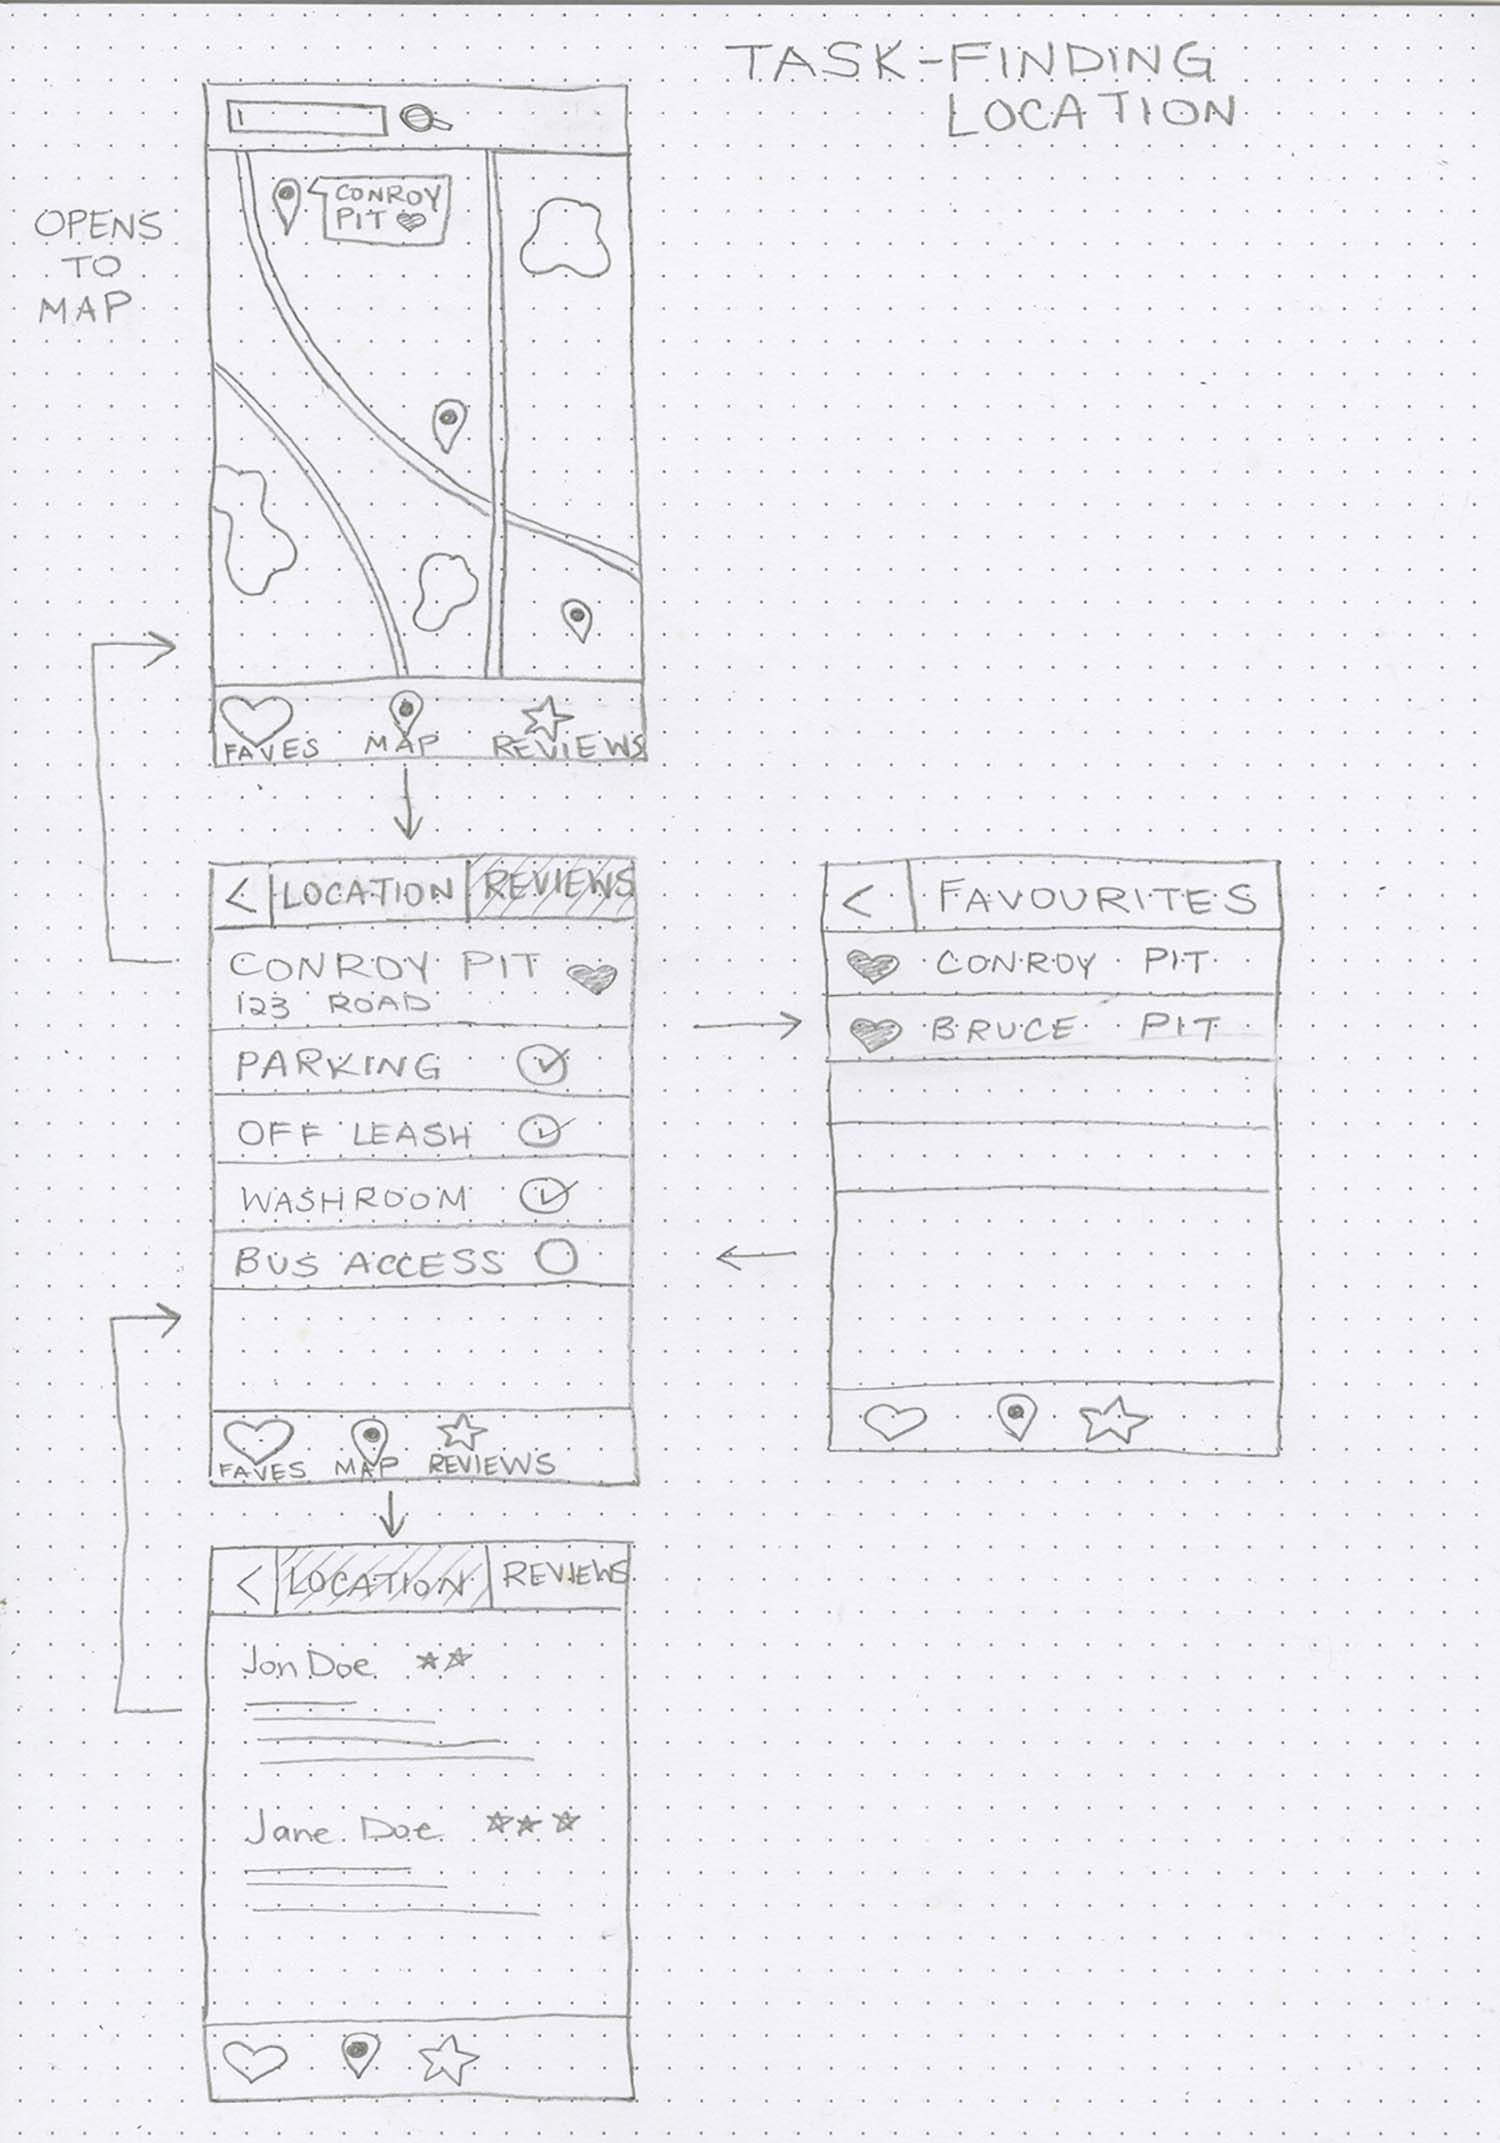 TASK-FINDING
LOCATION
OPENS
TO
MAP
CONROY
PIT
FAVES MAP REVIEWS
< LOCATION REVIEWS
CONROY PIT
123 ROAD
PARKING
OFF LEASH
WASHROOM
BUS ACCESS
FAVES MAP REVIEWS
< FAVOURITES
CONROY PIT
BRUCE PIT
< LOCATION REVIEWS
Jon Doe
Jane Doe